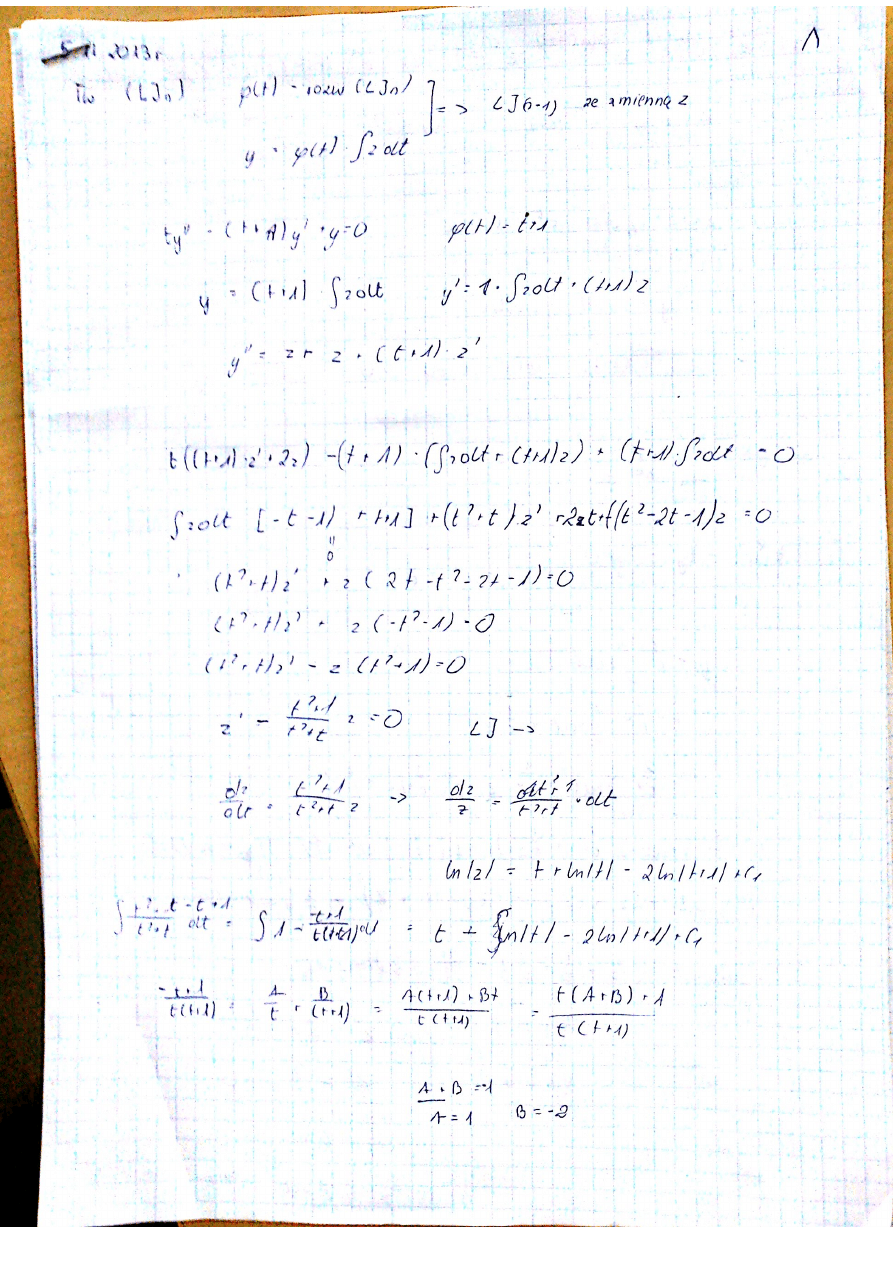 5.11 2013r
1
Tw (LJn) φ(t) - rozw (LJn) ] => LJ(n-1) ze zmienną z
y = φ(t) · ∫z dt
ty'' - (t+1)y' + y = 0 φ(t) = t+1
y = (t+1) ∫z dt y' = 1 · ∫z dt + (t+1) z
y'' = z + z + (t+1) · z'
t((t+1)·z' + 2z) - (t+1) · (∫z dt + (t+1)z) + (t+1)·∫z dt = 0
∫z dt [-t-1) + t+1] + (t²+t) z' + 2zt + (t²-2t-1)z = 0
"
0
(t²+t)z' + z (2t - t² - 2t - 1) = 0
(t²+t)z' + z (-t²-1) = 0
(t²+t)z' - z (t²+1) = 0
z' - \frac{t²+1}{t²+t} z = 0 LJ ->
\frac{dz}{dt} = \frac{t²+1}{t²+t} z -> \frac{dz}{z} = \frac{t²+1}{t²+t} · dt
ln|z| = t + ln|t| - 2ln|t+1| + C₁
∫\frac{t²+t-t+1}{t²+t} dt = ∫ 1 + \frac{-t+1}{t(t+1)} dt = t + ln|t| - 2ln|t+1| + C₁
\frac{-t+1}{t(t+1)} = \frac{A}{t} + \frac{B}{(t+1)} = \frac{A(t+1) + Bt}{t(t+1)} = \frac{t(A+B)+1}{t(t+1)}
A + B = -1
A = 1 B = -2